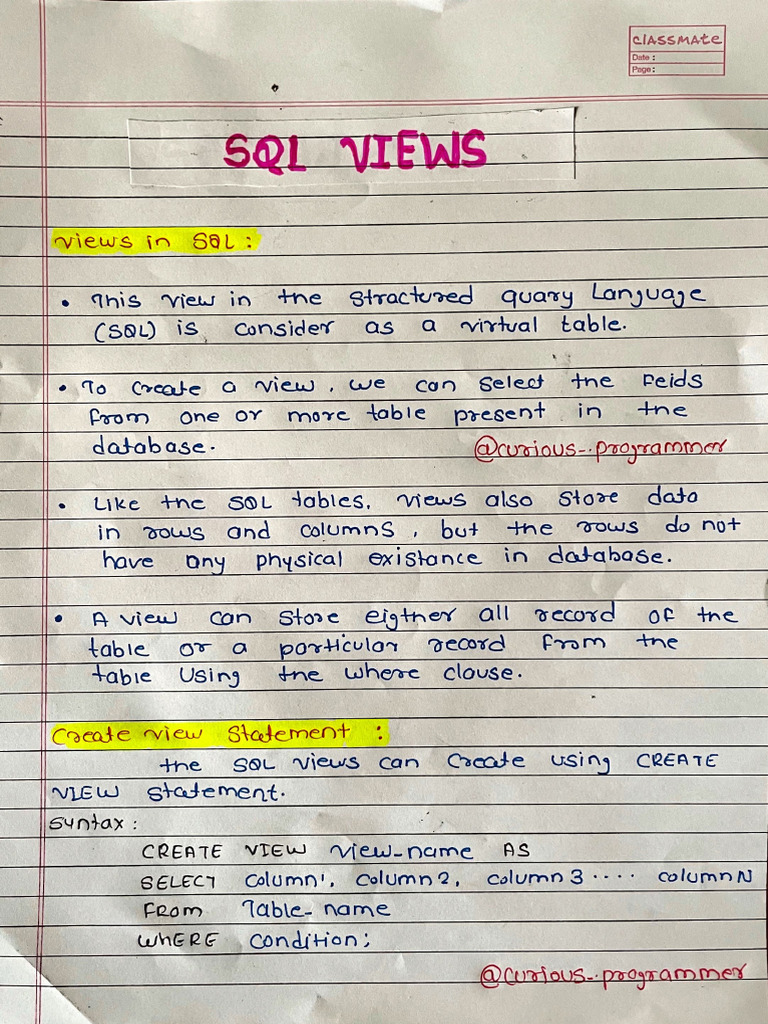 classmate
Date :
Page :
SQL VIEWS
Views in SQL :
• This view in the stractured quary Language
(SQL) is consider as a virtual table.
• To create a view, we can select the feids
from one or more table present in the
database.
@curious_.programmer
• Like the SQL tables, views also store data
in rows and columns, but the rows do not
have any physical existance in database.
• A view can store eigther all record of the
table or a particular record from the
table using the where clouse.
Create view statement :
the SQL views can create using CREATE
VIEW statement.
Syntax :
CREATE VIEW view_name AS
SELECT column1, column2, column3 .... columnN
FROM Table_name
WHERE condition;
@curious_.programmer